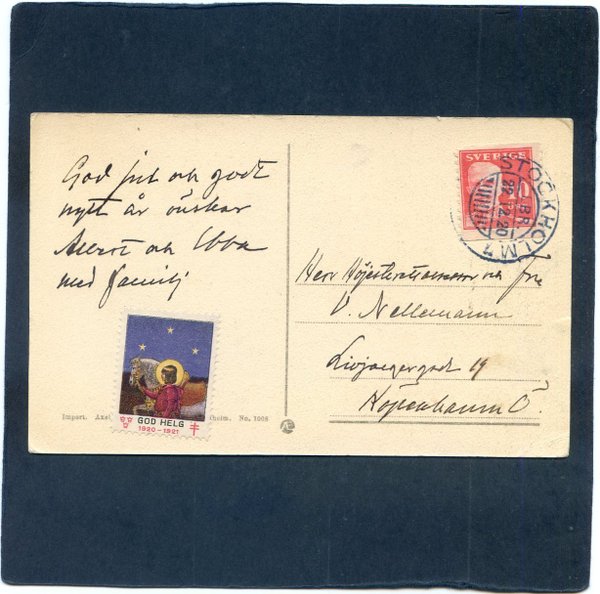 God jul och godt
nytt år önskar
och Ebba
med familj
SVERIGE
STOCKHOLM 1
BR
22 12 20
Herr och Fru
V. Nellemann
Livjægergade 19
Köpenhamn Ö.
Import. Axel
holm. No. 1008
GOD HELG
1920-1921